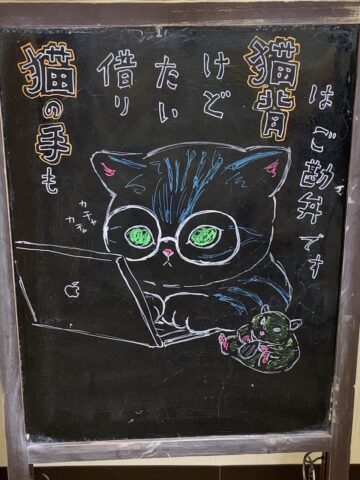 猫の手も
借り
たい
けど
猫背
はご勘弁です
カチャ
カチャ